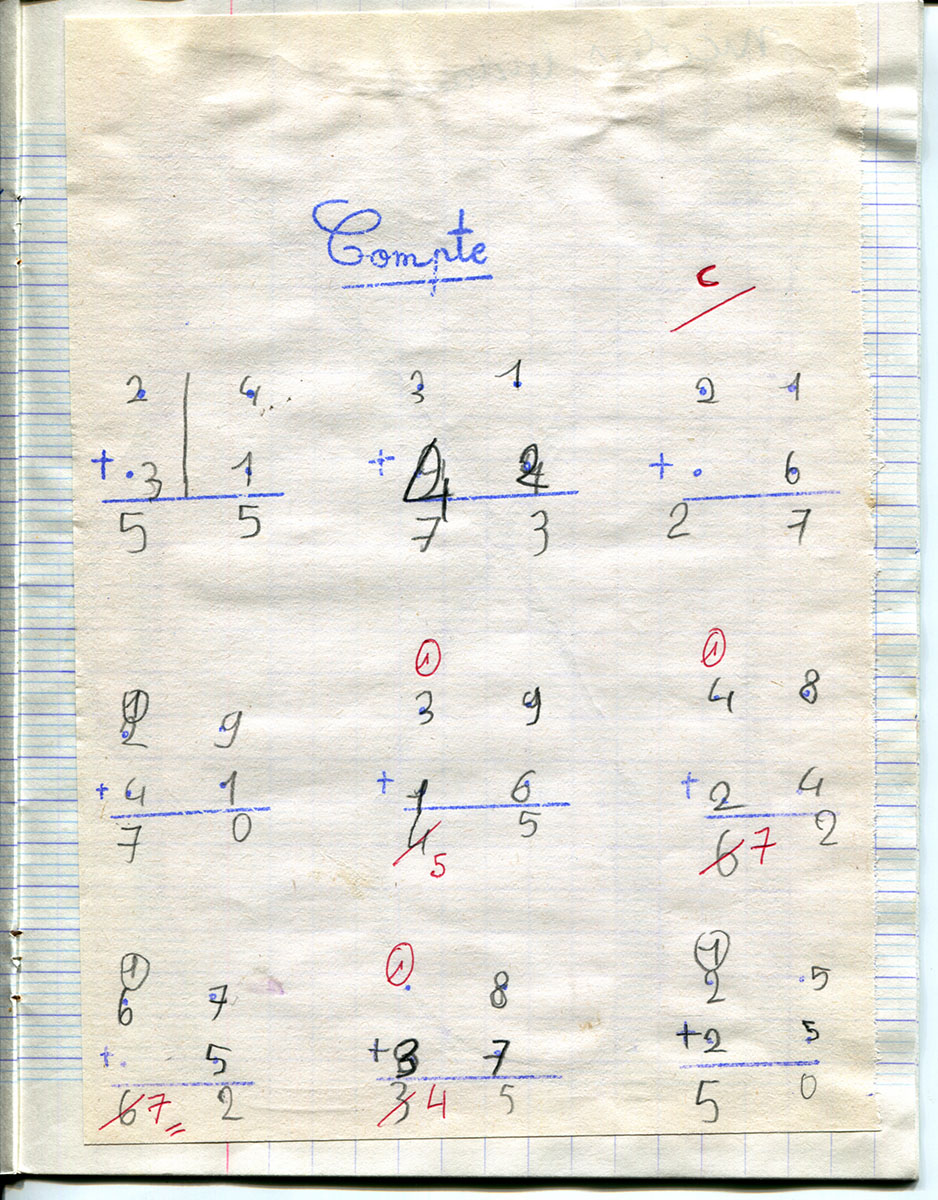 Compte
C
2 4 3 1 2 1
+ 3 1 + 4 2 + 6
5 5 7 3 2 7
1 1 1
2 9 3 9 4 8
+ 4 1 + 1 6 + 2 4
7 0 4 5 5 6 7 2
1 1 1
6 7 8 2 5
+ 5 + 3 7 + 2 5
6 7 2 3 4 5 5 0